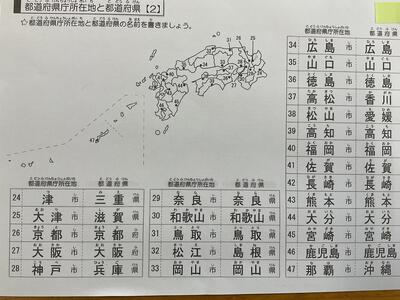 都道府県庁所在地と都道府県【2】
☆都道府県庁所在地と都道府県の名前を書きましょう。
都道府県庁所在地 都道府県
24 津市 三重県
25 大津市 滋賀県
26 京都市 京都府
27 大阪市 大阪府
28 神戸市 兵庫県
都道府県庁所在地 都道府県
29 奈良市 奈良県
30 和歌山市 和歌山県
31 鳥取市 鳥取県
32 松江市 島根県
33 岡山市 岡山県
都道府県庁所在地 都道府県
34 広島市 広島
35 山口市 山口
36 徳島市 徳島
37 高松市 香川
38 松山市 愛媛
39 高知市 高知
40 福岡市 福岡
41 佐賀市 佐賀
42 長崎市 長崎
43 熊本市 熊本
44 大分市 大分
45 宮崎市 宮崎
46 鹿児島市 鹿児島
47 那覇市 沖縄